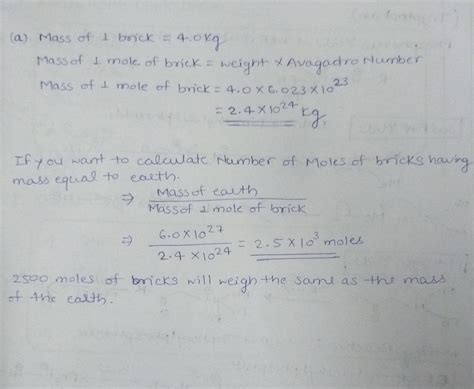 (a) Mass of 1 brick = 4.0 kg
Mass of 1 mole of brick = weight × Avagadro Number
Mass of 1 mole of brick = 4.0 × 6.023 × 10^23
= 2.4 × 10^24 kg
If you want to calculate Number of Moles of bricks having
mass equal to earth.
⇒ Mass of earth
Mass of 1 mole of brick
⇒ 6.0 × 10^27
2.4 × 10^24 = 2.5 × 10^3 moles
2500 moles of bricks will weigh the same as the mass
of the earth.